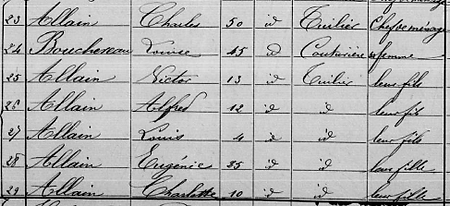 23 Allain Charles 50 id Tuilier Chef de ménage
24 Bouchereau Louise 45 id Couturière sa femme
25 Allain Victor 13 id Tuilier leur fils
26 Allain Alfred 12 id id leur fils
27 Allain Louis 4 id id leur fils
28 Allain Eugénie 35 id id leur fille
29 Allain Charlotte 10 id id leur fille